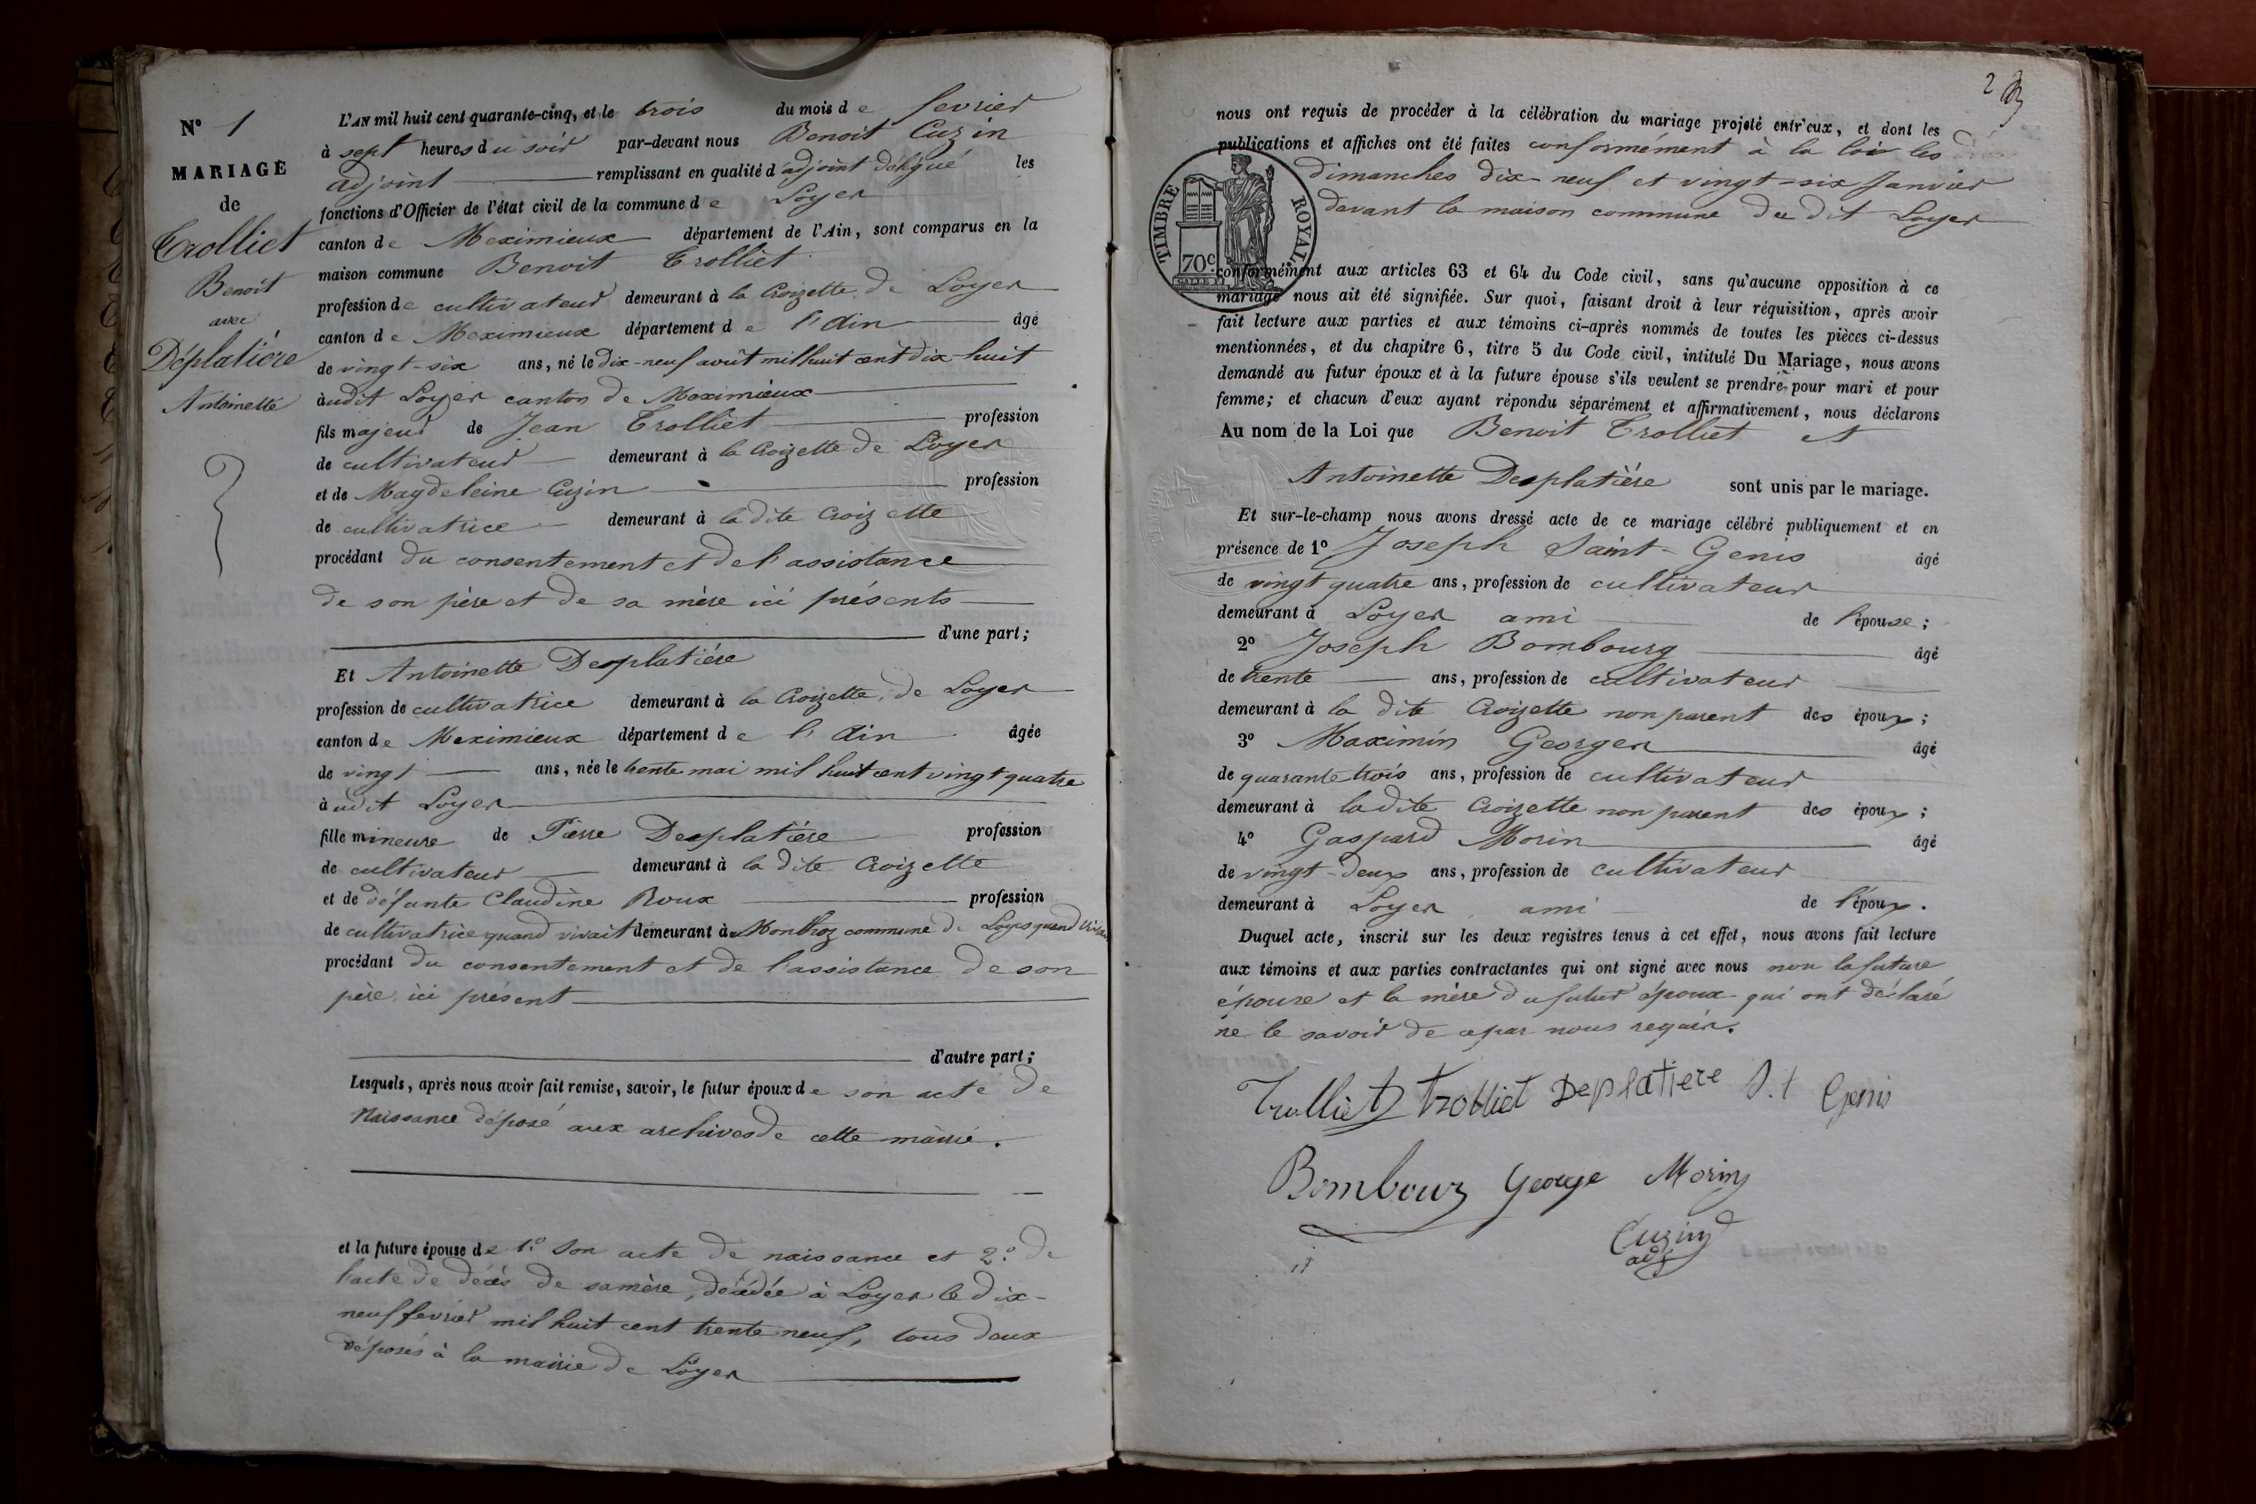 N° 1
MARIAGE
de
Trolliet
Benoit
avec
Déplatière
Antoinette
L'AN mil huit cent quarante-cinq, et le trois du mois de fevrier
à sept heures du soir par-devant nous Benoit Cuzin
adjoint remplissant en qualité d'adjoint délégué les
fonctions d'Officier de l'état civil de la commune de Loyes
canton de Meximieux département de l'Ain, sont comparus en la
maison commune Benoit Trolliet
profession de cultivateur demeurant à la Croizette de Loyes
canton de Meximieux département de l'Ain âgé
de vingt-six ans, né le dix-neuf août mil huit cent dix-huit
àudit Loyes canton de Meximieux
fils majeur de Jean Trolliet profession
de cultivateur demeurant à la Croizette de Loyes
et de Magdeleine Cuzin profession
de cultivatrice demeurant à la dite Croizette
procédant du consentement et de l'assistance
de son père et de sa mère ici présents
d'une part;
Et Antoinette Desplatière
profession de cultivatrice demeurant à la Croizette de Loyes
canton de Meximieux département de l'Ain âgée
de vingt ans, née le trente mai mil huit cent vingt quatre
àudit Loyes
fille mineure de Pierre Desplatière profession
de cultivateur demeurant à la dite Croizette
et de défunte Claudine Roux profession
de cultivatrice quand vivait demeurant à Monthoz commune de Loyes quand vivait
procédant du consentement et de l'assistance de son
père ici présent
d'autre part;
Lesquels, après nous avoir fait remise, savoir, le futur époux de son acte de
naissance déposé aux archives de cette mairie.
et la future épouse de 1.° son acte de naissance et 2.° de
l'acte de décès de sa mère, décédée à Loyes le dix-
neuf fevrier mil huit cent trente neuf, tous deux
déposés à la mairie de Loyes
2
nous ont requis de procéder à la célébration du mariage projeté entr'eux, et dont les
publications et affiches ont été faites conformément à la loi les
dimanches dix-neuf et vingt-six Janvier
devant la maison commune du dit Loyes
TIMBRE ROYAL
70c
conformément aux articles 63 et 64 du Code civil, sans qu'aucune opposition à ce
mariage nous ait été signifiée. Sur quoi, faisant droit à leur réquisition, après avoir
fait lecture aux parties et aux témoins ci-après nommés de toutes les pièces ci-dessus
mentionnées, et du chapitre 6, titre 5 du Code civil, intitulé Du Mariage, nous avons
demandé au futur époux et à la future épouse s'ils veulent se prendre pour mari et pour
femme; et chacun d'eux ayant répondu séparément et affirmativement, nous déclarons
Au nom de la Loi que Benoit Trolliet et
Antoinette Desplatière sont unis par le mariage.
Et sur-le-champ nous avons dressé acte de ce mariage célébré publiquement et en
présence de 1° Joseph Saint-Genis âgé
de vingt quatre ans, profession de cultivateur
demeurant à Loyes ami de l'épouse;
2° Joseph Bombourg âgé
de trente ans, profession de cultivateur
demeurant à la dite Croizette non parent des époux;
3° Maximin Georges âgé
de quarante trois ans, profession de cultivateur
demeurant à la dite Croizette non parent des époux;
4° Gaspard Morin âgé
de vingt-deux ans, profession de cultivateur
demeurant à Loyes ami de l'époux.
Duquel acte, inscrit sur les deux registres tenus à cet effet, nous avons fait lecture
aux témoins et aux parties contractantes qui ont signé avec nous non la future
épouse et la mère du futur époux qui ont déclaré
ne le savoir de ce par nous requis.
Trolliet Trolliet Deplatiere S.t Genis
Bombourg George Morin
Cuzin
adj